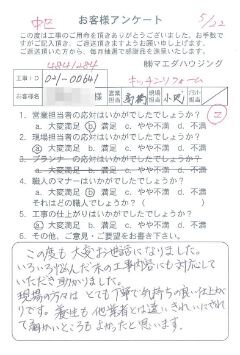 中区
お客様アンケート
5/22
この度は工事のご用命を頂きありがとうございました。お手数で
すがご記入頂き、ご返送頂きますようお願い申し上げます。
ご返送頂きますと、毎月抽選で感謝品を進呈いたします。
484/284
㈱マエダハウジング
工事ID
021-00641
キッチンリフォーム
お客様名
営業担当
新納
現場担当
小沢
1. 営業担当者の応対はいかがでしたでしょうか?
a. 大変満足 b. 満足 c. やや不満 d. 不満
2. 現場担当者の応対はいかがでしたでしょうか?
a. 大変満足 b. 満足 c. やや不満 d. 不満
3. プランナーの応対はいかがでしたでしょうか?
a. 大変満足 b. 満足 c. やや不満 d. 不満
4. 職人のマナーはいかがでしたでしょうか?
a. 大変満足 b. 満足 c. やや不満 d. 不満
それはどの職人でしょうか?( )
5. 工事の仕上がりはいかがでしたでしょうか?
a. 大変満足 b. 満足 c. やや不満 d. 不満
6. その他、ご意見・ご要望をお書き下さい
この度も大変お世話になりました。
いろいろ悩んだ末の工事内容にも対応して
いただき助かりました。
現場の方々はとても丁寧で気持ちの良い仕上が
りです。養生も他業者とは違いきれいにされ
て細かいところもよかったと思います。